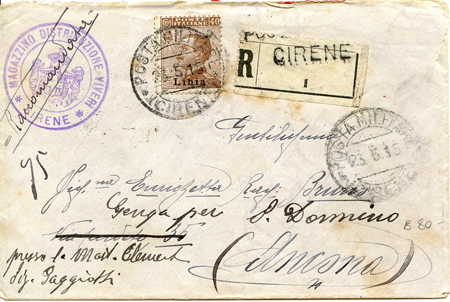 MAGAZZINO DISTRIBUZIONE VIVERI
CIRENE
Raccomandata
40
Libia
POSTA MILITARE
(CIRENE)
R
CIRENE
1
POSTA MILITARE
23.6.15
95
Gentilissima
Sig.na Enrichetta Rag. Bruno
Genga per S. Donnino
(Ancona)
B 80-
presso la Maest. Clement
Sig. Paggiotti